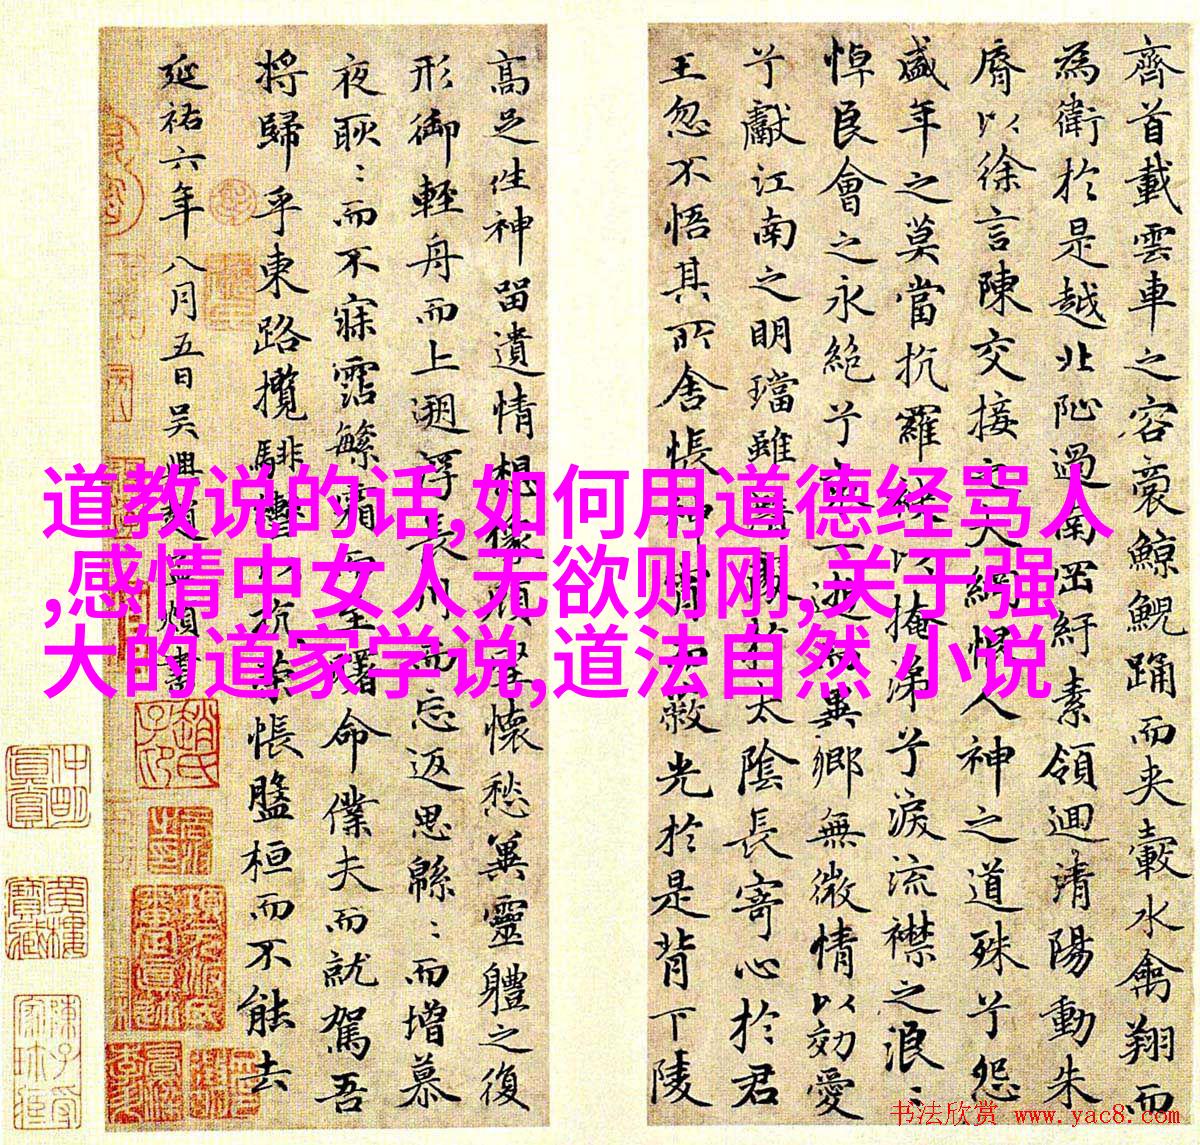 齊首載雲車之容裔鯨鯢踊而夾轂水禽翔而
為衛於是越北沚過南岡紆素領迴清陽動朱
脣以徐言陳交接之大綱恨人神之道殊兮怨
盛年之莫當抗羅袂以掩涕兮淚流襟之浪〻
悼良會之永絕兮哀一逝而異鄉無微情以効愛
兮獻江南之明璫雖潛處於太陰長寄心於君
王忽不悟其所舍悵神宵而蔽光於是背下陵
高足往神留遺情想像顧望懷愁冀靈體之復
形御輕舟而上遡浮長川而忘返思緜〻而增慕
夜耿〻而不寐霑繁霜而至曙命僕夫而就駕吾
將歸乎東路攬騑轡以抗策悵盤桓而不能去
延祐六年八月五日吳興趙孟頫書
道教说的话,如何用道德经骂人
,感情中女人无欲则刚,关于强
大的道家学说,道法自然 小说
书法欣赏 www.yac8.com